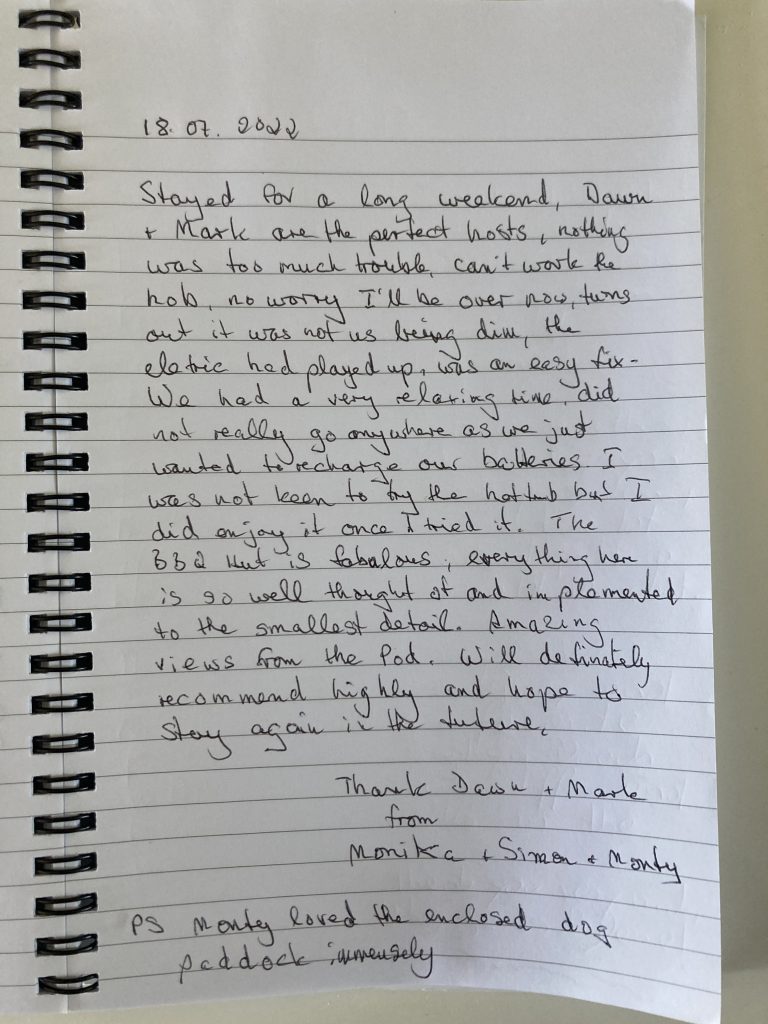 18. 07. 2022
Stayed for a long weekend, Dawn
+ Mark are the perfect hosts, nothing
was too much trouble, can't work the
hob, no worry I'll be over now, turns
out it was not us being dim, the
eletric had played up, was an easy fix-
We had a very relaxing time, did
not really go anywhere as we just
wanted to recharge our batteries. I
was not keen to try the hottub but I
did enjoy it once I tried it. The
BBQ Hut is fabalous, everything here
is so well thought of and implemented
to the smallest detail. Amazing
views from the Pod. Will definately
recommend highly and hope to
stay again in the future.
Thank Dawn + Mark
from
Monika + Simon + Monty
PS Monty loved the enclosed dog
paddock immensely